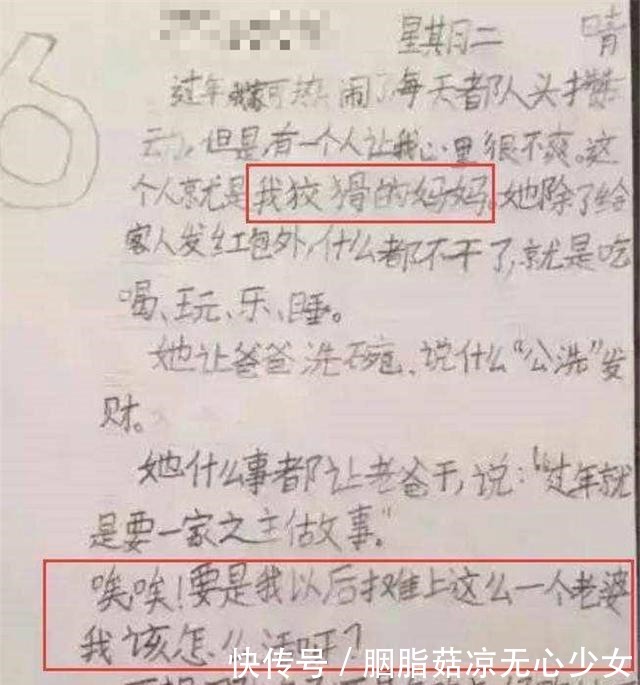 星期二 晴
6
过年我家可热闹了每天都队头攒
云力,但是,有一个人让我心里很不爽。这
个人就是我狡猾的妈妈。她除了给
客人发红包外,什么都不干了,就是吃
喝、玩、乐、睡。
她让爸爸洗碗、说什么“公洗”发
财。
她什么事都让老爸干,说:“过年就
是要一家之主估故事。”
唉唉!要是我以后摊上这么一个老婆
我该怎么活呀?
快传号 / 胭脂菇凉无心少女